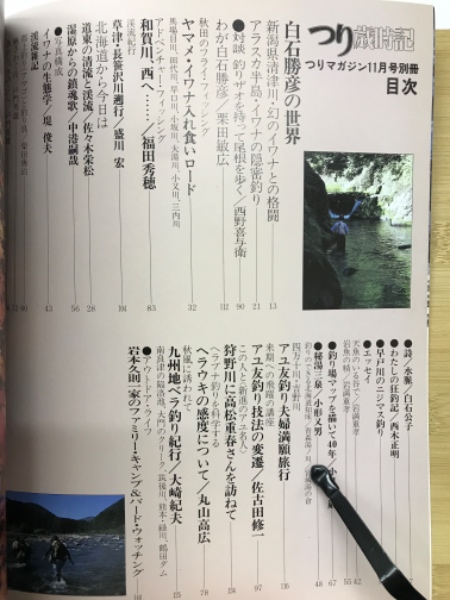 つり歳時記
つりマガジン11月号別冊
目次
白石勝彦の世界
新潟県清津川・幻のイワナとの格闘 13
アラスカ半島・イワナの隠密釣り 21
●対談 釣りザオを持って尾根を歩く／西野喜与衛 90
わが白石勝彦／栗田敏広 112
秋田のフライ・フィッシング
ヤマメ・イワナ入れ食いロード 32
馬場目川、田代川、早口川、小坂川、大湯川、小又川、三内川
アドベンチャー・フィッシング
和賀川、西へ……／福田秀穂 83
渓流紀行
草津・長笹沢川遡行／盛川 宏 104
北海道から今日は
道東の清流と渓流／佐々木栄松 28
湿原からの鎮魂歌／中港嗣哉 56
●写真構成
イワナの生態学／堤 俊夫 43
渓流雑記
●詩／水脈／白石公子
●わたしの狂釣記／西木正明
●早戸川のニジマス釣り
●エッセイ
天魚のいる谷で／岩満重孝 42
岩魚の精／岩満重孝 55
●釣り場マップを描いて40年／小 67
●秘湯三泉／小形又男 48
四万十川・吉野川
アユ友釣り夫婦満願旅行 24
来期への飛躍の講座
アユ友釣り技法の変遷／佐古田修一 97
この人と新進のアユ名人
狩野川に高松重春さんを訪ねて 116
ヘラブナ釣りを科学する
ヘラウキの感度について／丸山高広 78
秋風に誘われて
九州地ベラ釣り紀行／大崎紀夫
南良津の陥落池、大門のクリーク、筑後川、熊本・緑川、鶴田ダム
●アウトドア・ライフ
岩本久則一家のファミリー・キャンプ&バード・ウォッチング